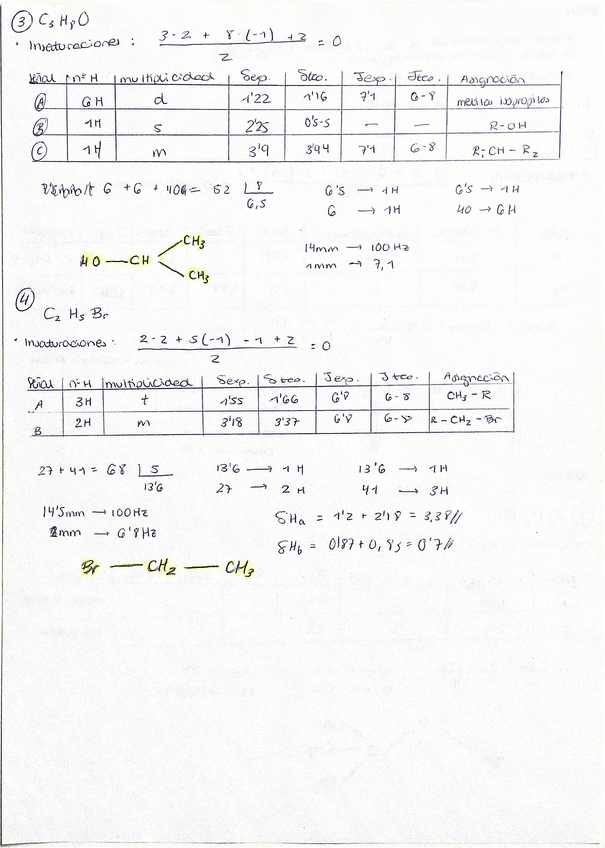 ③ C₃H₈O
· Insaturaciones: (3·2 + 8·(-1) + 2) / 2 = 0
Señal nºH multiplicidad δexp. δteo. Jexp. Jteo. Asignación
Ⓐ 6H d 1'22 1'16 7'1 6-8 metilos isopropilos
Ⓑ 1H s 2'25 0'5-5 — — R-OH
Ⓒ 1H m 3'9 3'94 7'1 6-8 R₁CH-R₂
6 + 6 + 40 = 52 | 8 6'5 → 1H 6'5 → 1H
6,5 6 → 1H 40 → 6H
14mm → 100Hz
1mm → 7,1
HO — CH CH₃
CH₃
④
C₂H₅Br
· Insaturaciones: (2·2 + 5(-1) - 1 + 2) / 2 = 0
Señal nºH multiplicidad δexp. δteo. Jexp. Jteo. Asignación
A 3H t 1'55 1'66 6'8 6-8 CH₃-R
B 2H m 3'18 3'37 6'8 6-8 R-CH₂-Br
27 + 41 = 68 | 5 13'6 → 1H 13'6 → 1H
13'6 27 → 2H 41 → 3H
14'5mm → 100Hz δHa = 1'2 + 2'18 = 3,38//
1mm → 6'8Hz δHb = 0'87 + 0,85 = 0'7//
Br — CH₂ — CH₃